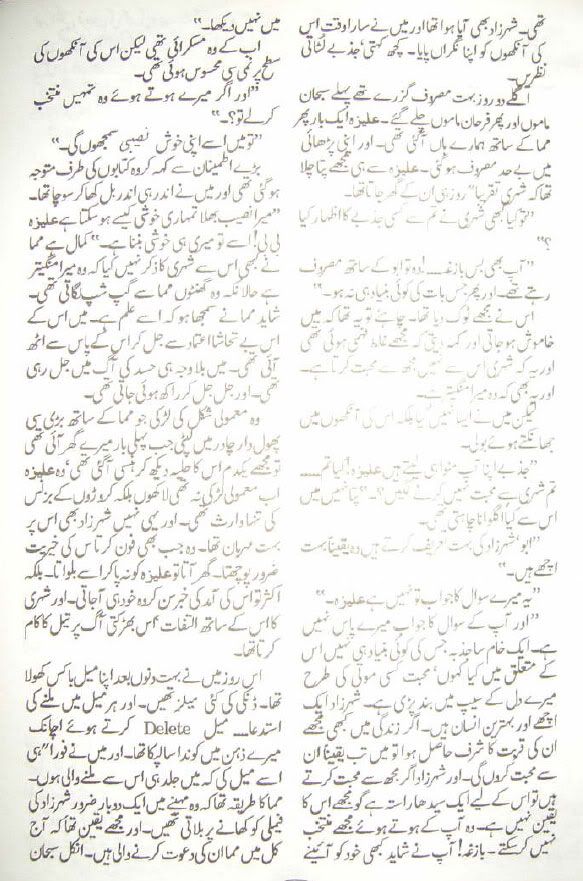 تھی۔ شہرزاد بھی آیا ہوا تھا اور میں نے سارا وقت اس
کی آنکھوں کو اپنا نگراں پایا۔ کچھ کہتی، جذبے لٹاتی
نظریں۔
اگلے دو روز بہت مصروف گزرے تھے پہلے سبحان
ماموں اور پھر فرحان ماموں چلے گئے۔ علیزہ ایک بار پھر
مما کے ساتھ ہمارے ہاں آ گئی تھی۔ اور اپنی پڑھائی
میں بے حد مصروف ہو گئی۔ علیزہ سے ہی مجھے پتا چلا
تھا کہ شہری تقریباً روز ہی ان کے گھر جاتا تھا۔
"تو کیا کبھی شہری نے تم سے کسی جذبے کا اظہار کیا
؟"
"آپ بھی بس بازغہ.... وہ تو ابو کے ساتھ مصروف
رہتے تھے۔ اور پھر جس بات کی کوئی بنیاد ہی نہ ہو۔"
اس نے مجھے ٹوک دیا تھا۔ چاہئے تو یہ تھا کہ میں
خاموش ہو جاتی اور کہہ دیتی کہ مجھے غلط فہمی ہوئی تھی
اور یہ کہ شہری اس سے نہیں مجھ سے محبت کرتا ہے۔
اور یہ بھی کہ وہ میرا منگیتر ہے۔
لیکن میں نے ایسا نہیں کیا بلکہ اس کی آنکھوں میں
جھانکتے ہوئے بولی۔
"جذبے اپنا آپ منوا ہی لیتے ہیں علیزہ! کیا تم....
تم شہری سے محبت نہیں کرنے لگیں؟۔" پتا نہیں میں
اس سے کیا اگلوانا چاہتی تھی۔
"ابو شہرزاد کی بہت تعریف کرتے ہیں وہ یقیناً بہت
اچھے ہیں۔"
"یہ میرے سوال کا جواب تو نہیں ہے علیزہ۔"
"اور آپ کے سوال کا جواب میرے پاس نہیں
ہے۔ ایک خام سا جذبہ جس کی کوئی بنیاد ہی نہیں اس
کے متعلق میں کیا کہوں، محبت کسی موتی کی طرح
میرے دل کے سیپ میں بند پڑی ہے۔ شہرزاد ایک
اچھے اور بہترین انسان ہیں۔ اگر زندگی میں کبھی مجھے
ان کی قربت کا شرف حاصل ہوا تو میں تب یقیناً ان
سے محبت کروں گی۔ اور شہرزاد اگر مجھ سے محبت کرتے
ہیں تو اس کے لیے ایک سیدھا راستہ ہے گو مجھے اس کا
یقین نہیں ہے۔ وہ آپ کے ہوتے ہوئے مجھے منتخب
نہیں کر سکتے۔ بازغہ! آپ نے شاید کبھی خود کو آئینے
میں نہیں دیکھا۔"
اب کے وہ مسکرائی تھی لیکن اس کی آنکھوں کی
سطح پر نمی سی محسوس ہوئی تھی۔
"اور اگر میرے ہوتے ہوئے وہ تمہیں منتخب
کر لے تو؟۔"
"تو میں اسے اپنی خوش نصیبی سمجھوں گی۔"
بڑے اطمینان سے کہہ کر وہ کتابوں کی طرف متوجہ
ہو گئی تھی اور میں نے اندر ہی اندر بل کھا کر سوچا تھا۔
"میرا نصیب بھلا تمہاری خوشی کیسے ہو سکتا ہے علیزہ
بی بی! اسے تو میری ہی خوشی بننا ہے۔" کمال ہے مما
نے کبھی اس سے شہری کا ذکر نہیں کیا کہ وہ میرا منگیتر
ہے حالانکہ وہ گھنٹوں مما سے گپ شپ لگاتی تھی۔
شاید مما نے سمجھا ہو کہ اسے علم ہے۔ میں اس کے
اس بے تحاشا اعتماد سے جل کر اس کے پاس سے اٹھ
آئی تھی۔ میں بلاوجہ ہی حسد کی آگ میں جل رہی
تھی۔ اور جل جل کر راکھ ہوئی جاتی تھی۔
وہ معمولی شکل کی لڑکی جو مما کے ساتھ بڑی سی
پھول دار چادر میں لپٹی جب پہلی بار میرے گھر آئی تھی
تو مجھے یکدم اس کا حلیہ دیکھ کر ہنسی آ گئی تھی، وہ علیزہ
اب معمولی لڑکی نہ تھی لاکھوں بلکہ کروڑوں کے بزنس
کی تنہا وارث تھی۔ اور یہی نہیں شہرزاد بھی اس پر
بہت مہربان تھا۔ وہ جب بھی فون کرتا اس کی خیریت
ضرور پوچھتا۔ گھر آتا تو علیزہ کو نہ پا کر اسے بلواتا۔ بلکہ
اکثر تو اس کی آمد کی خبر سن کر وہ خود ہی آ جاتی۔ اور شہری
کا اس کے ساتھ التفات، اس بھڑکتی آگ پر تیل کا کام
کرتا تھا۔
اس روز میں نے بہت دنوں بعد اپنا میل باکس کھولا
تھا۔ ڈنکی کی کئی میلز تھیں۔ اور ہر میل میں ملنے کی
استدعا.... میل Delete کرتے ہوئے اچانک
میرے ذہن میں کوندا سا لپکا تھا۔ اور میں نے فوراً ہی
اسے میل کی کہ میں جلد ہی اس سے ملنے والی ہوں۔
مما کا طریقہ تھا کہ وہ مہینے میں ایک دو بار ضرور شہرزاد کی
فیملی کو کھانے پر بلاتی تھیں۔ اور مجھے یقین تھا کہ آج
کل میں مما ان کی دعوت کرنے والی ہیں۔ انکل سبحان